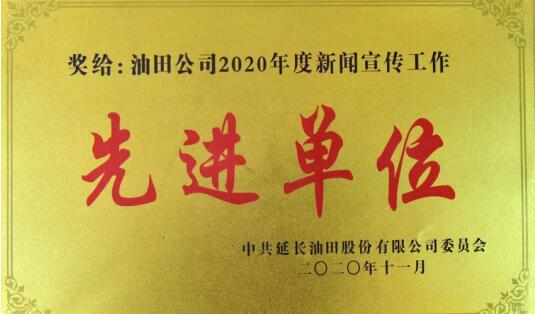 奖给:油田公司2020年度新闻宣传工作
先进单位
中共延长油田股份有限公司委员会
二〇二〇年十一月